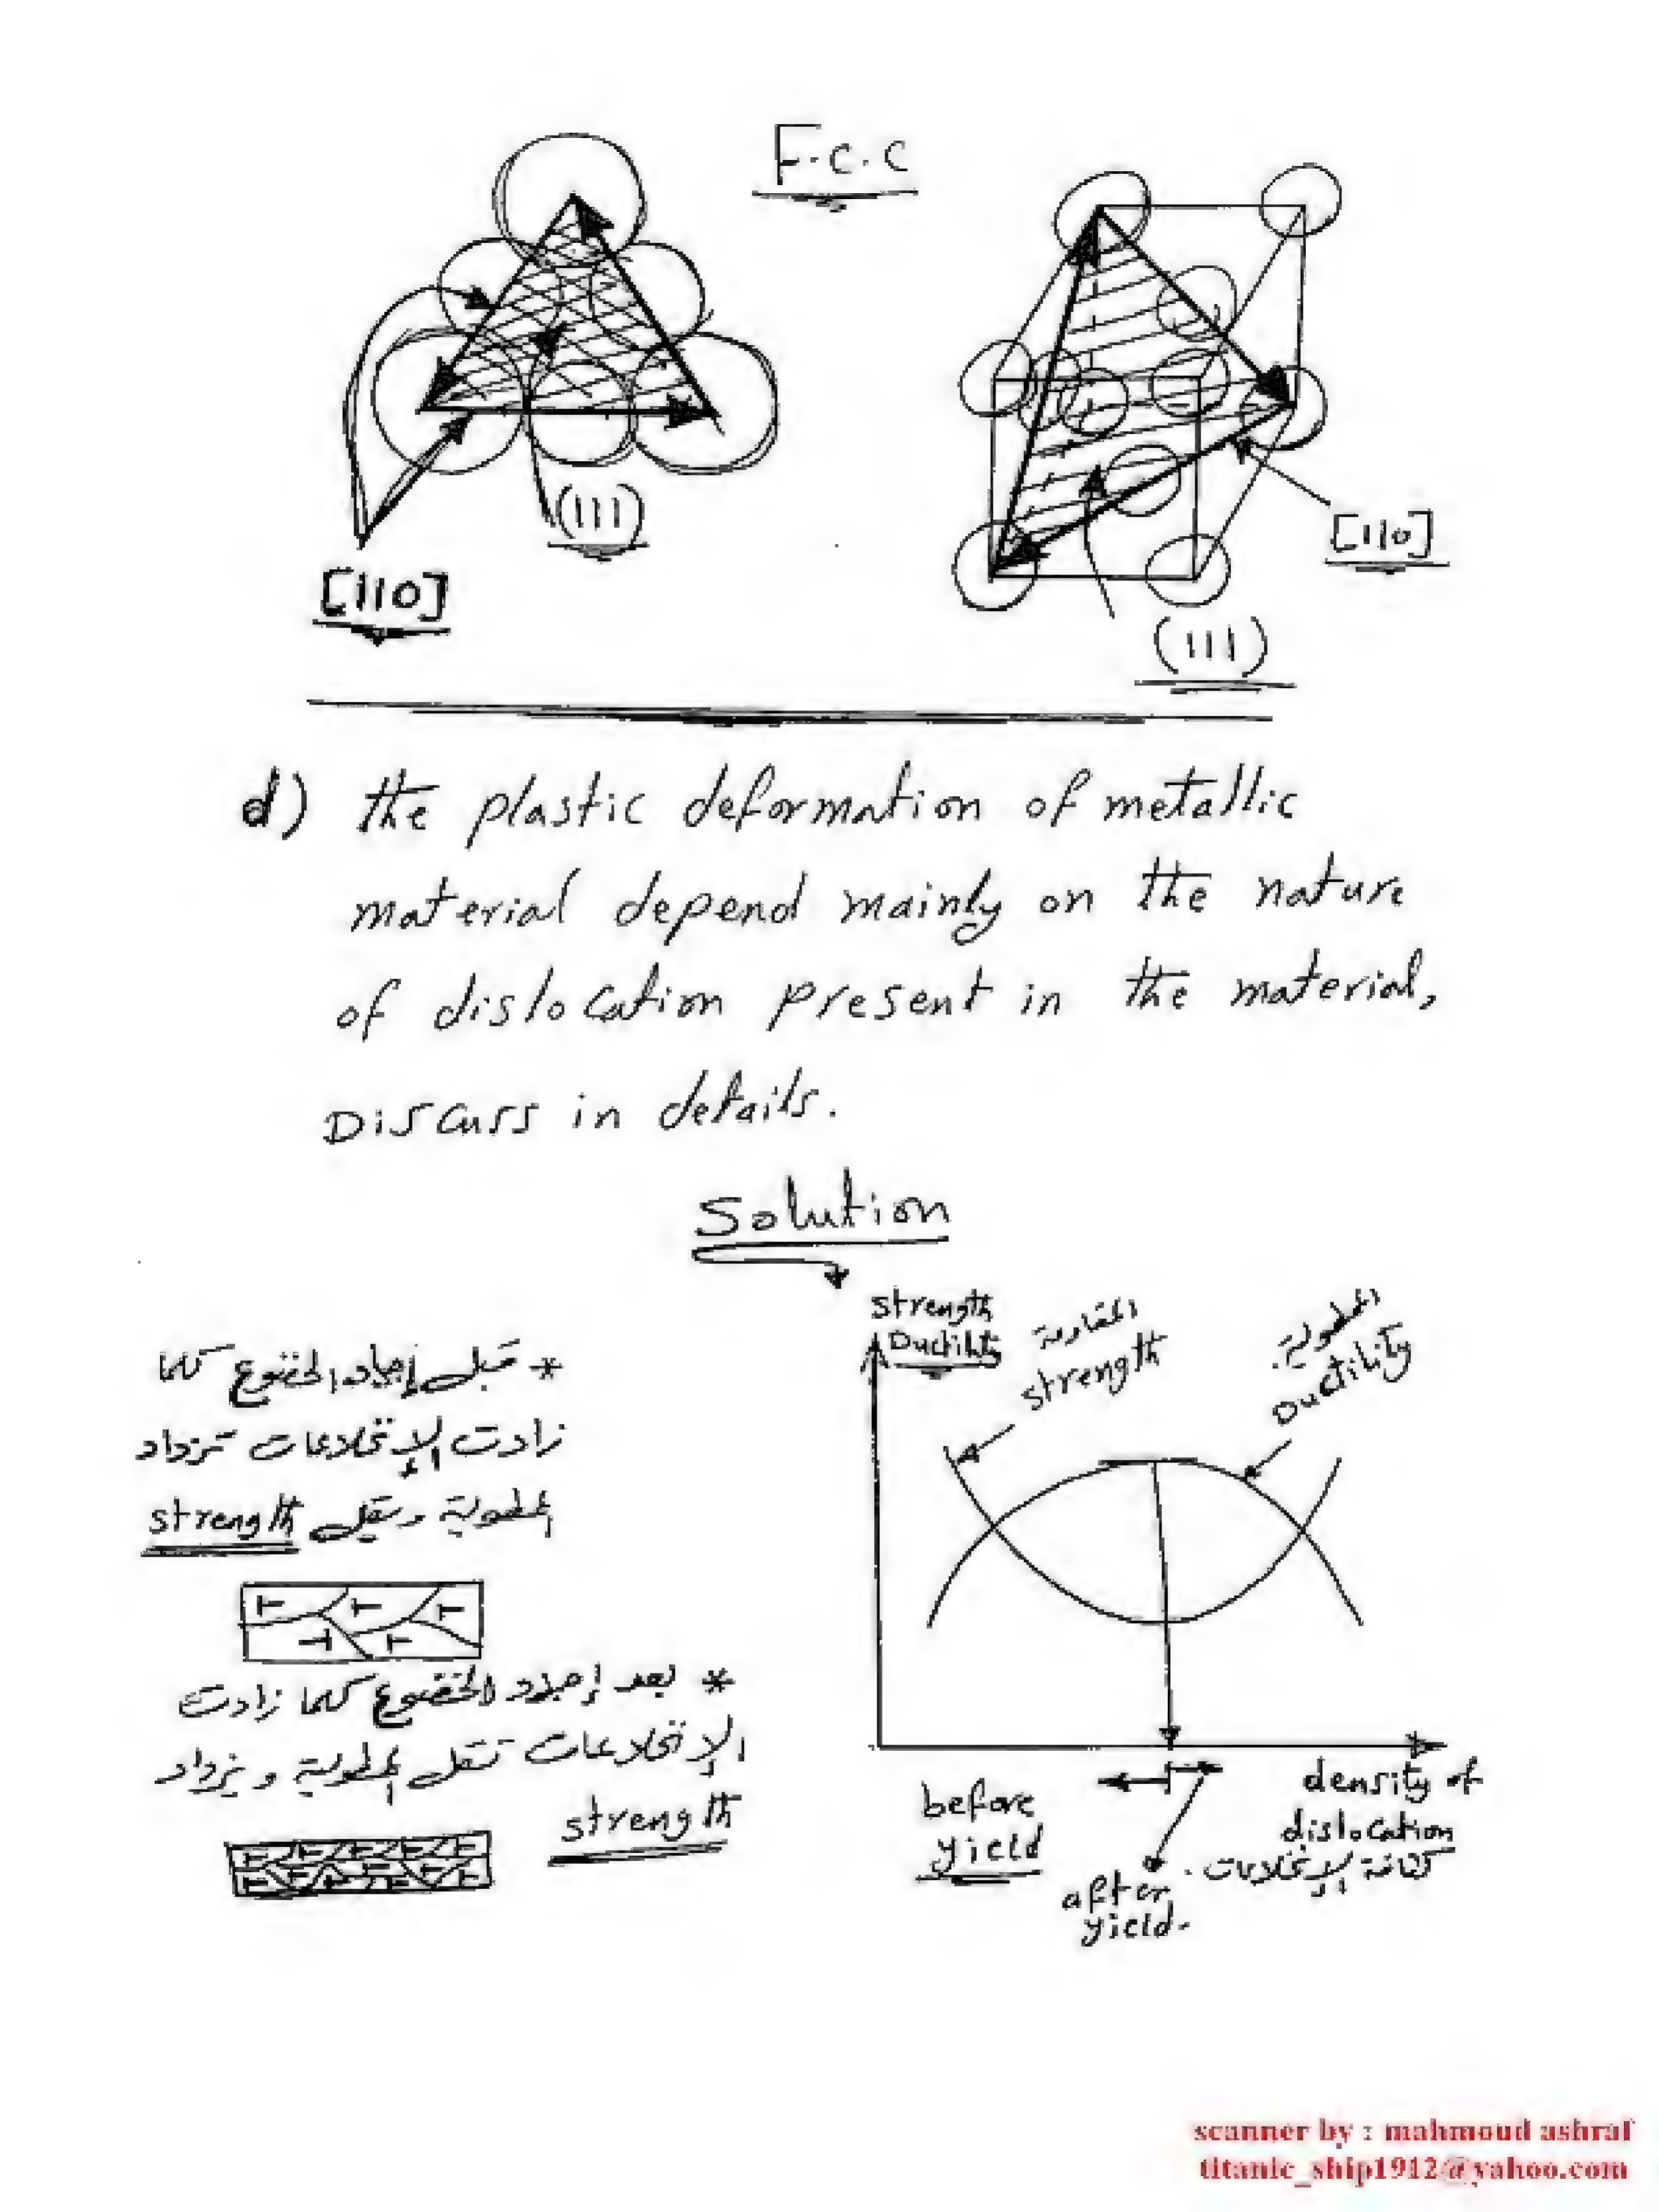 F.C.C
(111)
[110]
[110]
(111)
d) the plastic deformation of metallic
material depend mainly on the nature
of dislocation present in the material,
Discuss in details.
Solution
* قبل إجهاد الخضوع كلما
زادت الإنخلاعات تزداد
المطولية ويقل strength
* بعد إجهاد الخضوع كلما زادت
الإنخلاعات تقل المطولية ويزداد
strength
strength
Ductility
المقاومة
strength
المطولية
Ductility
before
yield
after
yield.
density of
dislocation
كثافة الإنخلاعات
scanner by : mahmoud ashraf
titanic_ship1912@yahoo.com